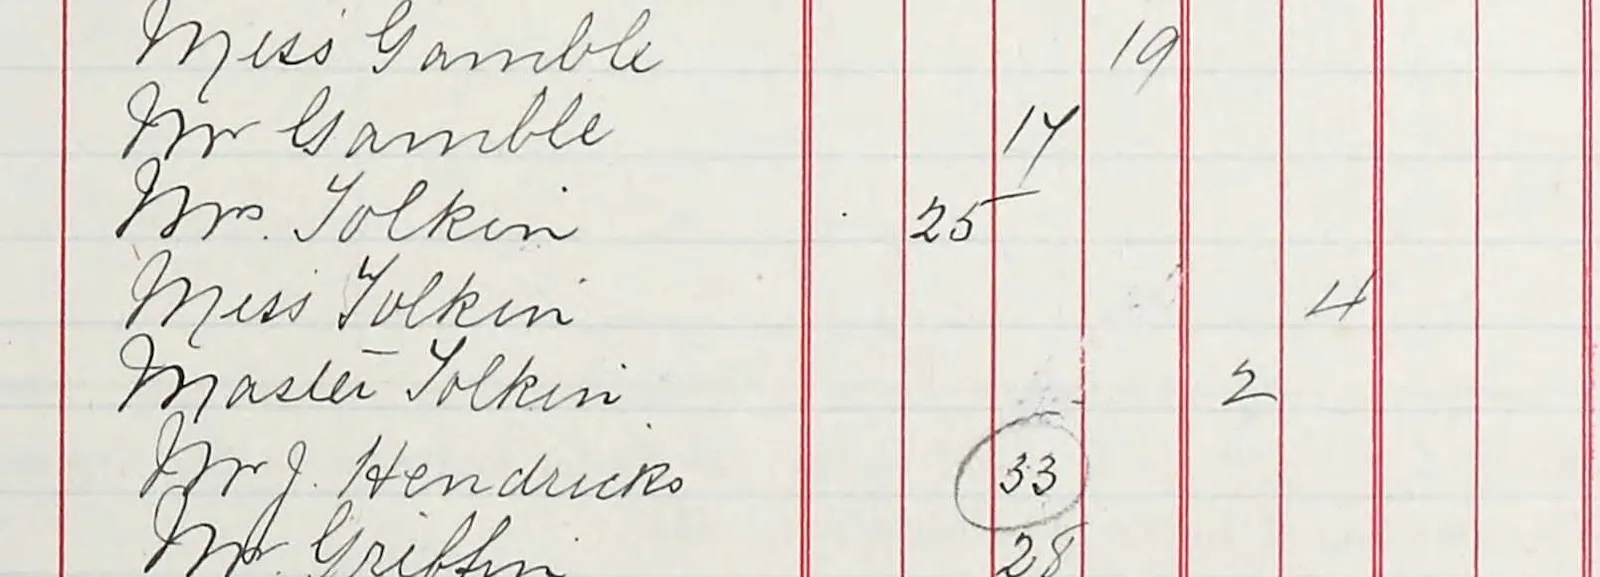 Miss Gamble 19
Mr Gamble 17
Mrs. Tolkin 25
Miss Tolkin 4
Master Tolkin 2
Mr J. Hendricks 33
Mr. Griffin 28